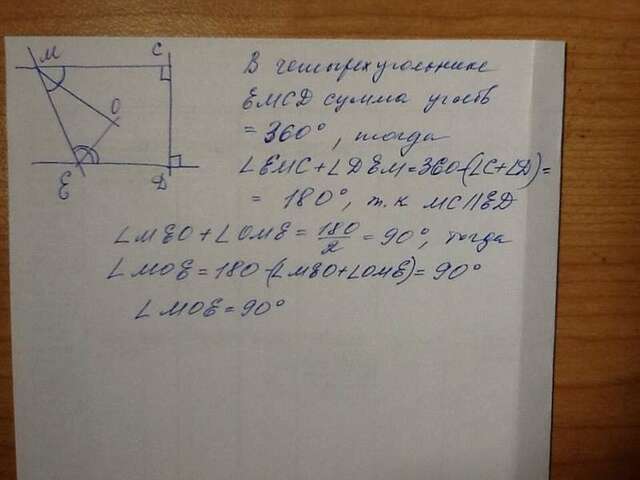 M C
O
E D
В четырехугольнике
EMCD сумма углов
= 360°, тогда
∠EMC + ∠DEM = 360-(∠C+∠D) =
= 180°, т.к MC || ED
∠MEO + ∠OME = 180/2 = 90°, тогда
∠MOE = 180-(∠MEO+∠OME) = 90°
∠MOE = 90°